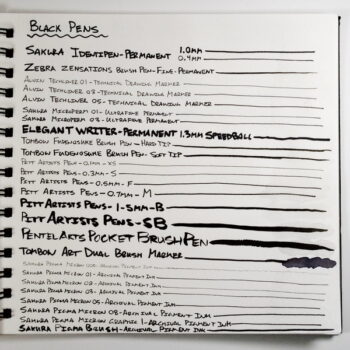 Black Pens
Sakura Identipen - Permanent 1.0mm
0.4mm
Zebra Zensations Brush Pen - Fine - Permanent
Alvin Techliner 01 - Technical Drawing Marker
Alvin Techliner 03 - Technical Drawing Marker
Alvin Techliner 05 - Technical Drawing Marker
Sakura Microperm 01 - Ultrafine Permanent
Sakura Microperm 03 - Ultrafine Permanent
Elegant Writer - Permanent 1.3mm Speedball
Tombow Fudenosuke Brush Pen - Hard Tip
Tombow Fudenosuke Brush Pen - Soft Tip
Pitt Artists Pens - 0.1mm - XS
Pitt Artists Pens - 0.3mm - S
Pitt Artists Pens - 0.5mm - F
Pitt Artists Pens - 0.7mm - M
Pitt Artists Pens - 1.5mm - B
Pitt Artists Pens - SB
Pentel Arts Pocket Brush Pen
Tombow Art Dual Brush Marker
Sakura Pigma Micron - Archival Pigment Ink
Sakura Pigma Micron 01 - Archival Pigment Ink
Sakura Pigma Micron - Archival Pigment Ink
Sakura Pigma Micron 03 - Archival Pigment Ink
Sakura Pigma Micron 05 - Archival Pigment Ink
Sakura Pigma Micron 08 - Archival Pigment Ink
Sakura Pigma Micron Graphic 1 - Archival Pigment Ink
Sakura Pigma Brush - Archival Pigment Ink